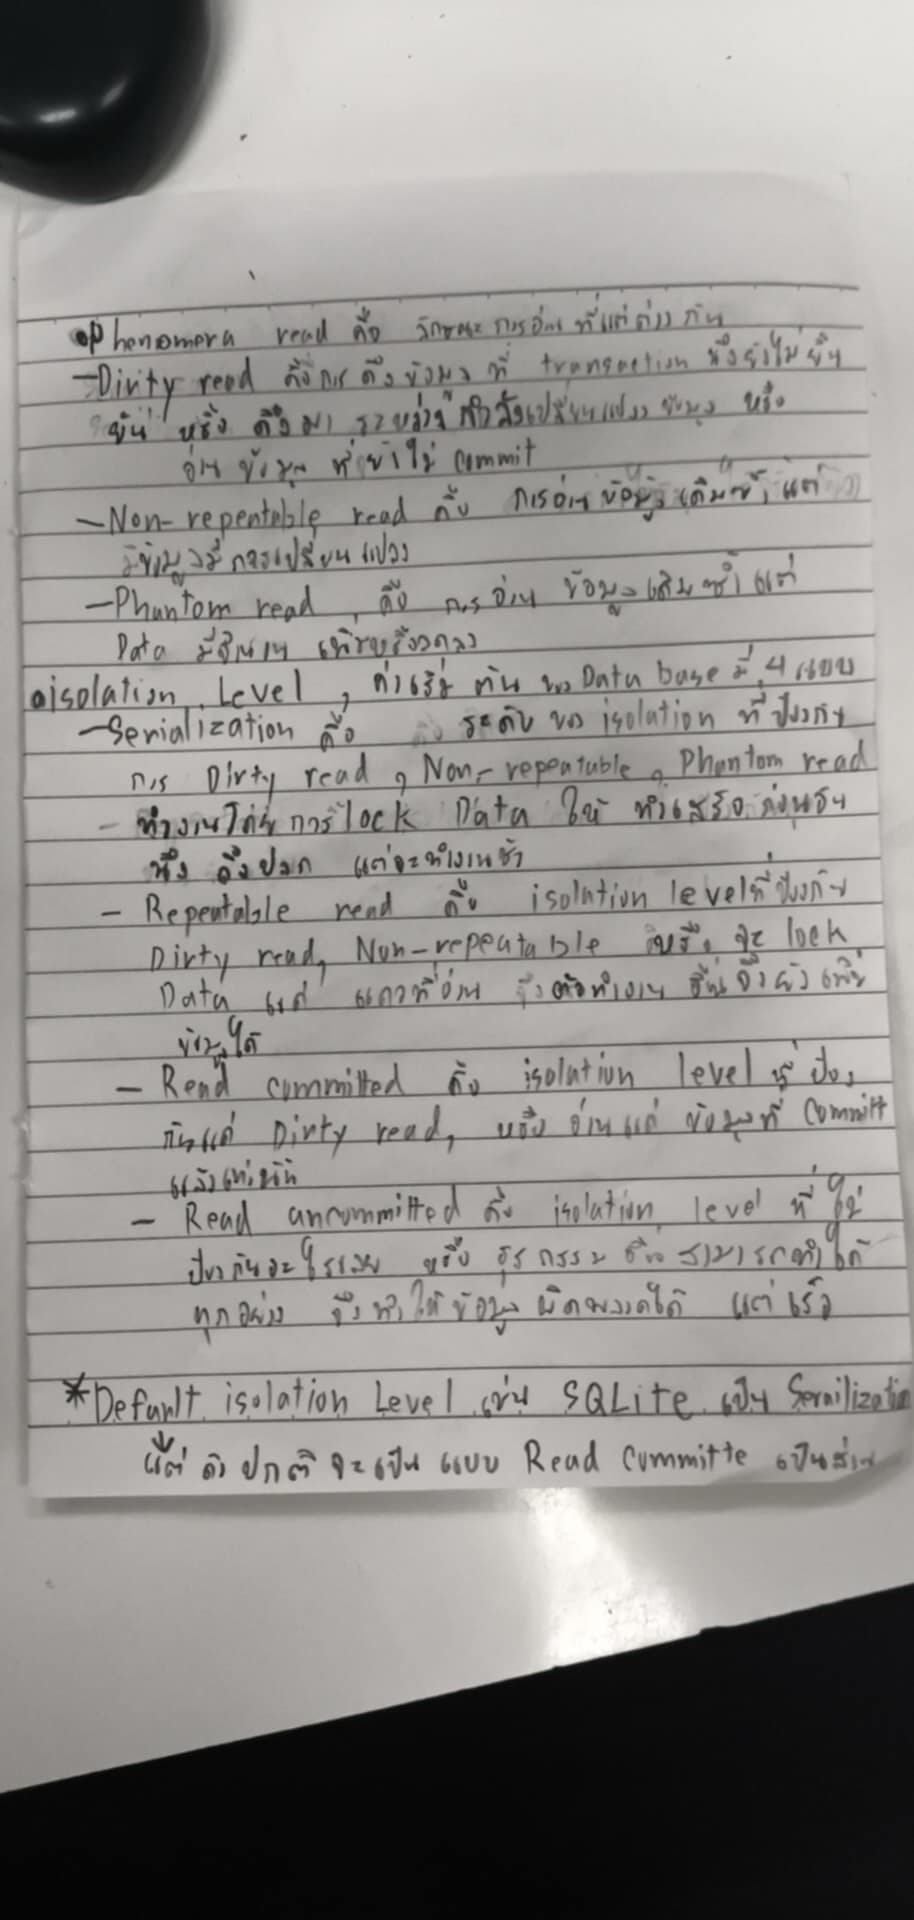 Phenomera read คือ ลักษณะการอ่าน ที่แตกต่างกัน
-Dirty read คือการ ดึงข้อมูล ที่ transaction ยังไม่ยืน
ยัน หรือ ดึงมา ระหว่างกำลังเปลี่ยนแปลง ข้อมูล หรือ
อ่าน ข้อมูล ที่ยังไม่ commit
-Non-repeatable read คือ การอ่านข้อมูลเดิมซ้ำ แต่
ข้อมูลมีการเปลี่ยนแปลง
-Phantom read คือ การ อ่าน ข้อมูลเดิมซ้ำ แต่
Data มีจำนวน เพิ่มหรือลดลง
isolation Level, ค่าเริ่ม ต้น ของ Data base มี 4 แบบ
-Serialization คือ ระดับ ของ isolation ที่ป้องกัน
การ Dirty read, Non-repeatable, Phantom read
- ทำงานโดย การ lock Data ให้ ทำเสร็จ ก่อน
ถึง แต่จะทำงานช้า
- Repeatable read คือ isolation level ที่ป้องกัน
Dirty read, Non-repeatable หรือ จะ lock
Data แค่ แถวที่อ่าน อื่นจึงยัง เพิ่ม
ข้อมูลได้
- Read committed คือ isolation level ที่ ป้อง
กันแค่ Dirty read, หรือ อ่านแค่ ข้อมูลที่ Committ
แล้วเท่านั้น
- Read ancommitted คือ isolation level ที่ ไม่
ป้องกันอะไรเลย หรือ ธุรกรรม อื่น สามารถทำได้
ทุกอย่าง จึงทำให้ข้อมูล ผิดพลาดได้ แต่ เร็ว
*Default isolation Level เช่น SQLite เป็น Serailization
แต่ ปกติ จะเป็น แบบ Read Committe เป็นส่วน